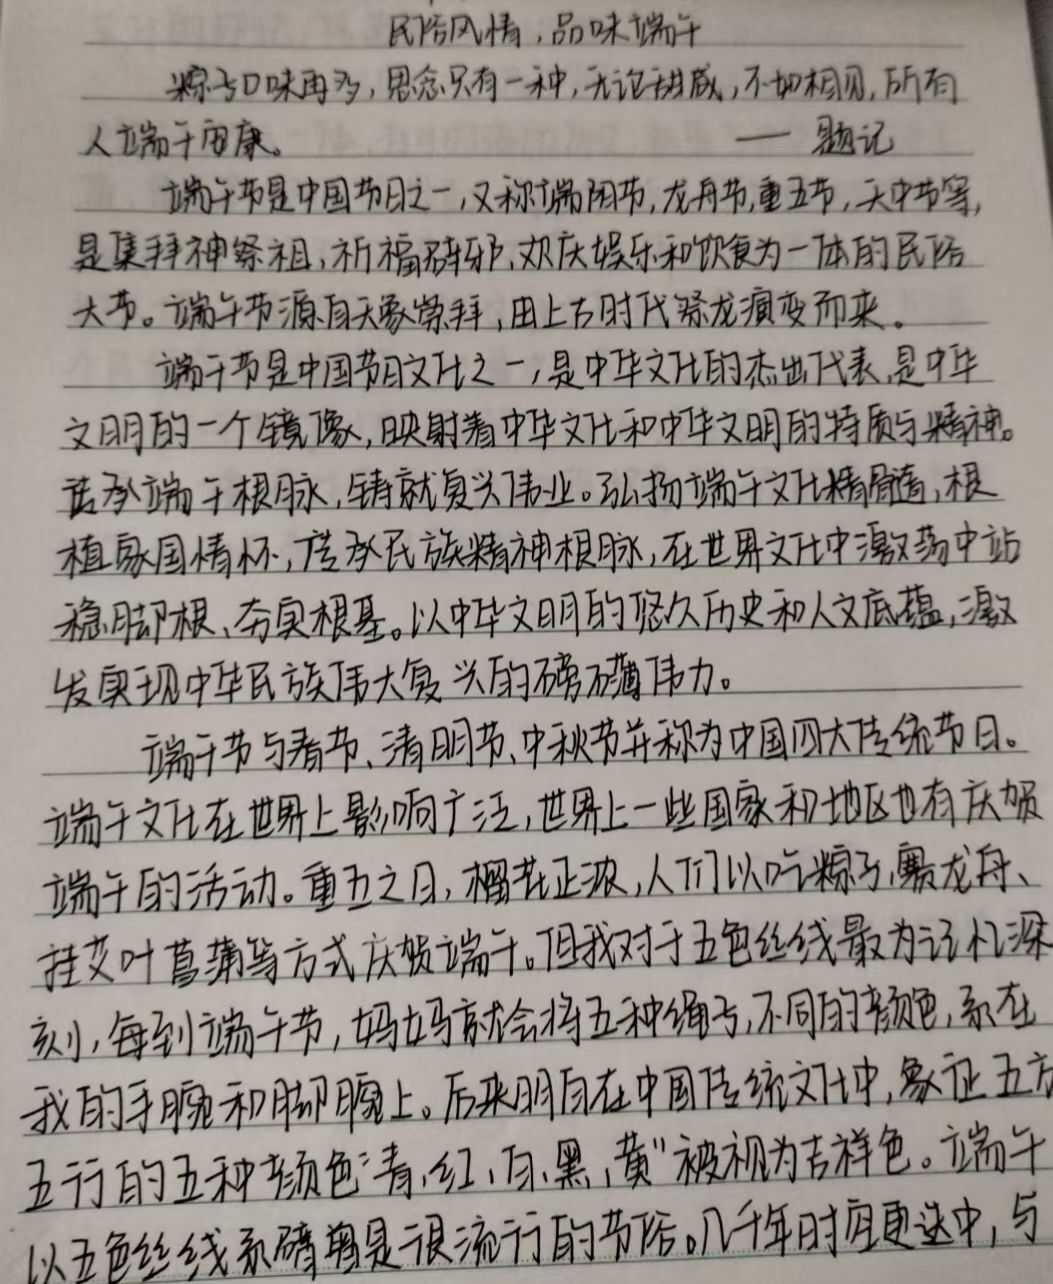 民俗风情,品味端午
粽子口味再多,思念只有一种,无论甜咸,不如相见,所有
人端午安康。 —— 题记
端午节是中国节日之一,又称端阳节,龙舟节,重五节,天中节等,
是集拜神祭祖、祈福辟邪、欢庆娱乐和饮食为一体的民俗
大节。端午节源自天象崇拜,由上古时代祭龙演变而来。
端午节是中国节日文化之一,是中华文化的杰出代表,是中华
文明的一个镜像,映射着中华文化和中华文明的特质与精神。
传承端午根脉,铸就复兴伟业。弘扬端午文化精髓,根
植家国情怀,传承民族精神根脉,在世界文化中激荡中站
稳脚根、夯实根基。以中华文明的悠久历史和人文底蕴,激
发实现中华民族伟大复兴的磅礴伟力。
端午节与春节、清明节、中秋节并称为中国四大传统节日。
端午文化在世界上影响广泛,世界上一些国家和地区也有庆贺
端午的活动。重五之日,榴花正浓,人们以吃粽子、赛龙舟、
挂艾叶菖蒲等方式庆贺端午。但我对于五色丝线最为记忆深
刻,每到端午节,妈妈就会将五种绳子,不同的颜色,系在
我的手腕和脚腕上。后来明白在中国传统文化中,象征五方
五行的五种颜色“青、红、白、黑、黄”被视为吉祥色。端午
以五色丝线系臂曾是很流行的节俗。几千年时间更迭中,与